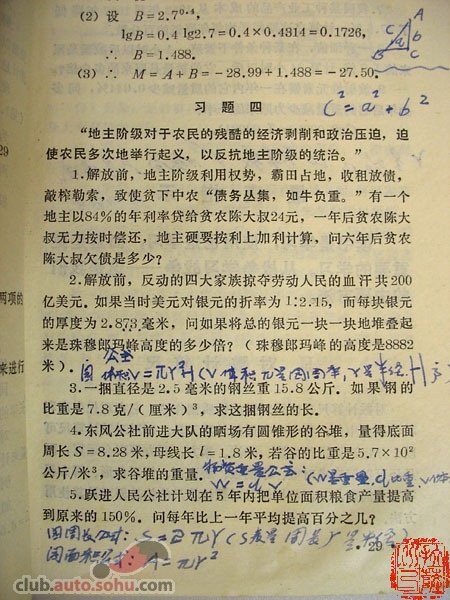 (2) 设 B=2.7⁰·⁴,
lgB=0.4 lg2.7=0.4×0.4314=0.1726,
∴ B=1.488.
(3) ∴ M=A+B=-28.99+1.488=-27.50.
A
C
b
a
B
C
习 题 四
C²=a²+b²
“地主阶级对于农民的残酷的经济剥削和政治压迫，迫
使农民多次地举行起义，以反抗地主阶级的统治。”
29
1.解放前，地主阶级利用权势，霸田占地，收租放债，
敲榨勒索，致使贫下中农“债务丛集，如牛负重。”有一个
地主以84%的年利率贷给贫农陈大叔24元，一年后贫农陈大
叔无力按时偿还，地主硬要按利上加利计算，问六年后贫农
陈大叔欠债是多少？
2.解放前，反动的四大家族掠夺劳动人民的血汗共200
亿美元。如果当时美元对银元的折率为1:2.15，而每块银元
两项的
的厚度为2.873毫米，问如果将总的银元一块一块地堆叠起
来是珠穆郎玛峰高度的多少倍？（珠穆郎玛峰的高度是8882
来进行
米）.
公式
3.一捆直径是2.5毫米的钢丝重15.8公斤。如果钢的
比重是7.8克/（厘米）³，求这捆钢丝的长。
4.东风公社前进大队的晒场有圆锥形的谷堆，量得底面
周长S=8.28米，母线长l=1.8米，若谷的比重是5.7×10²
公斤/米³，求谷堆的重量.
W=d.V
5.跃进人民公社计划在5年内把单位面积粮食产量提高
到原来的150%．问每年比上一年平均提高百分之几？
S=2πr
29
圆面积公式：A=πr²
club.auto.sohu.com